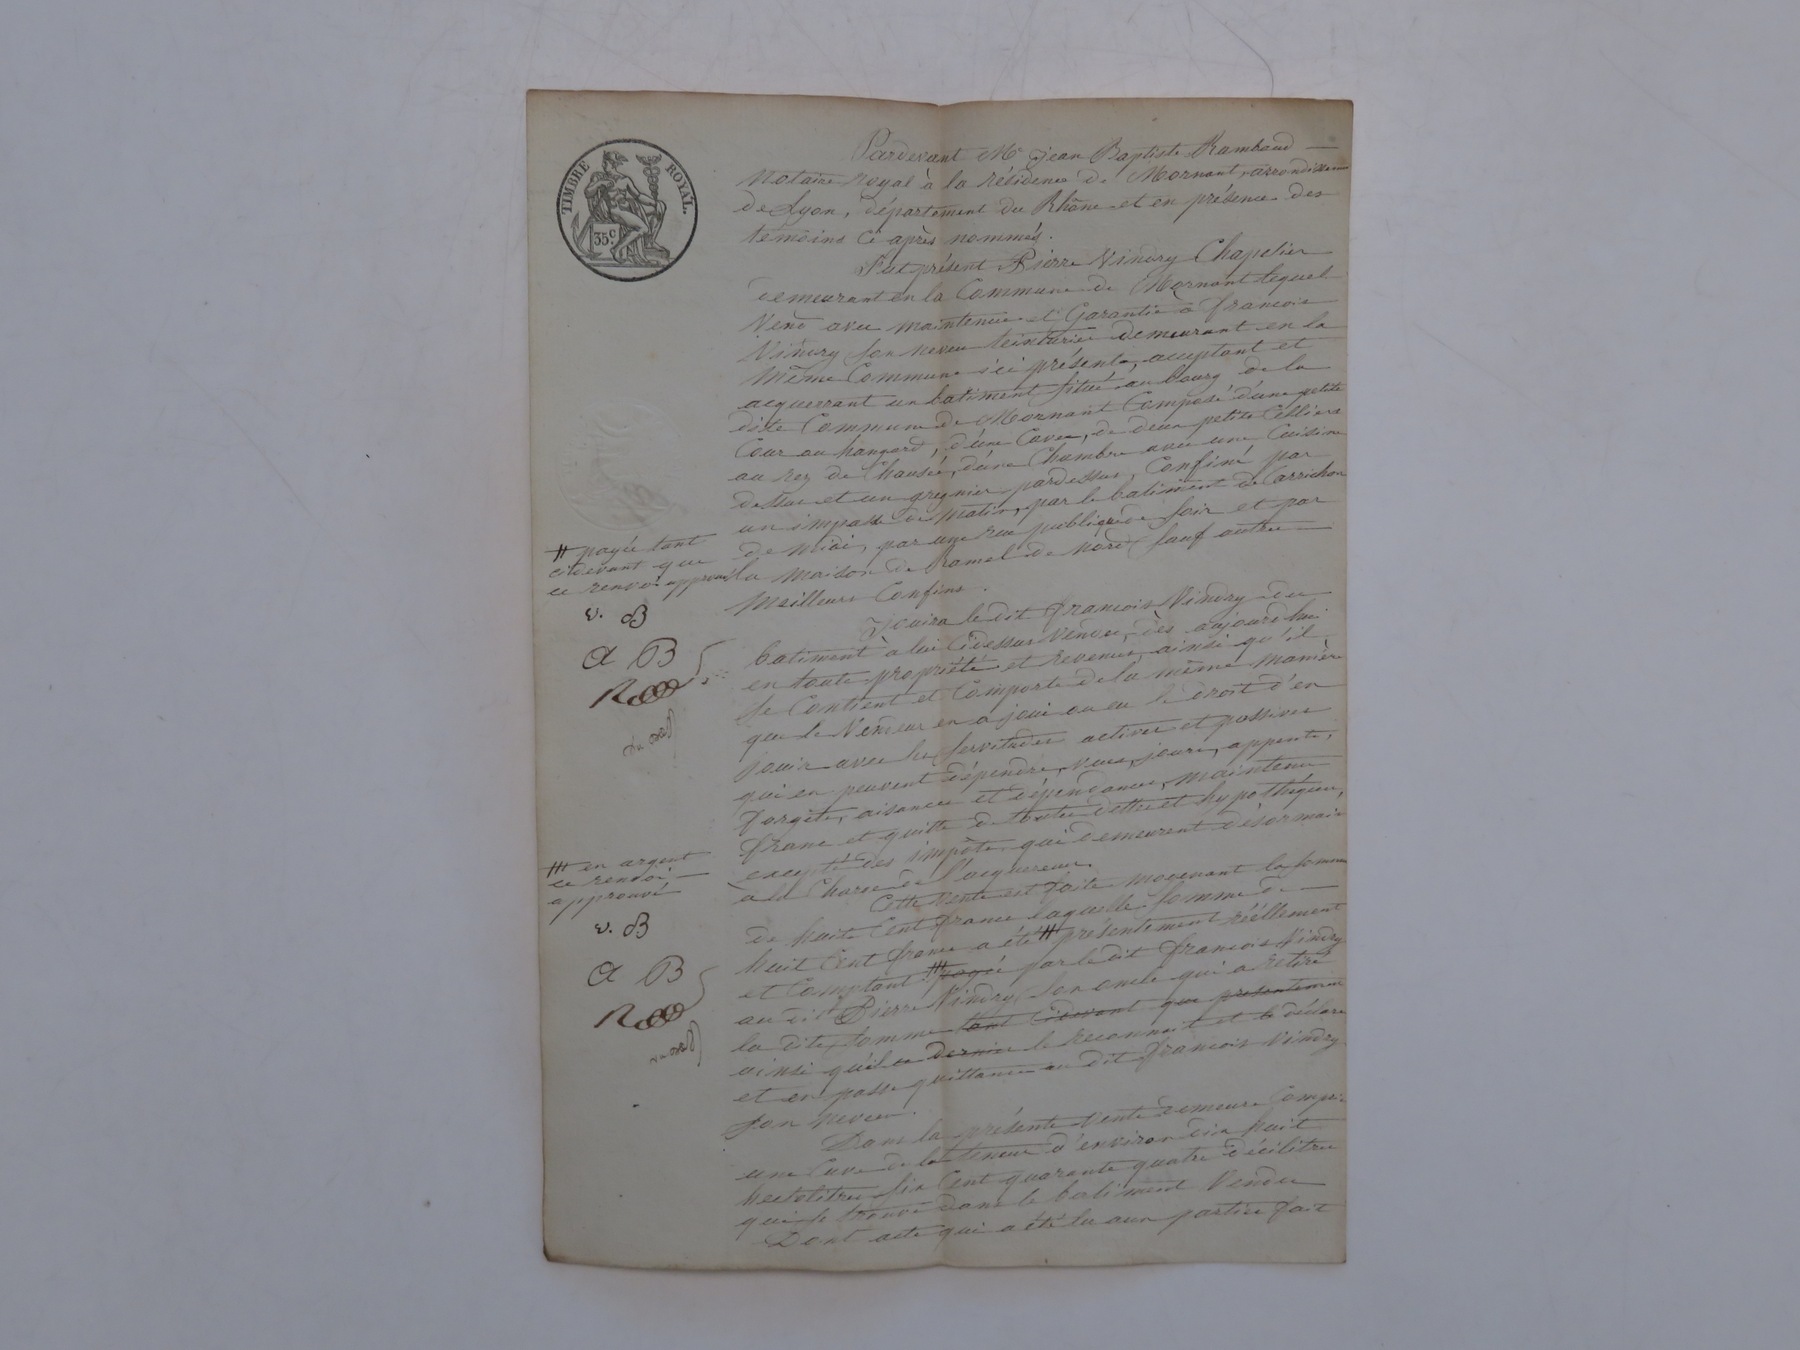 TIMBRE ROYAL.
35 c
Pardevant Me Jean Baptiste Rambaud
Notaire royal à la résidence de Mornant, arrondissement
de Lyon, département du Rhône et en présence des
témoins ci après nommés.
Fut présent Pierre Vindry Chapelier
demeurant en la Commune de Mornant lequel
Vend avec maintenue et Garantie à françois
Vindry son neveu teinturier demeurant en la
même Commune ici présent, acceptant et
acquerrant un batiment situé au bourg de la
dite Commune de Mornant Composé d'une petite
Cour au hangard, d'une Cave, de deux petits Celliers
au rez de Chausée, d'une Chambre avec une Cuisine
dessus et un grenier pardessus, Confiné par
un impasse de matin, par le batiment de Carrichon
de midi, par une rue publique de soir et par
la maison de Ramel de nord, sauf autres
Meilleurs Confins.
Jouira le dit françois Vindry du
batiment à lui Cidessus Vendu, dès aujourd'hui
en toute propriété et revenus, ainsi qu'il
se Contient et Comporte de la même manière
que le Vendeur en a joui ou eu le droit d'en
jouir avec les servitudes actives et passives
qui en peuvent dépendre, vues, jours, appents,
forgets, aisances et dépendances, maintenu
franc et quitte de toutes dettes et hypothèques,
excepté des impôts qui demeurent désormais
à la Charge de l'acquereur.
Cette Vente est faite moyenant la somme
de huit Cent francs laquelle somme de
huit Cent francs a été # présentement réellement
et Comptant payée par le dit françois Vindry
au dit Pierre Vindry son oncle qui a retiré
la dite somme tant Cidevant que présentement
ainsi qu'il ce dernier le reconnait et le déclare
et en passe quittance au dit françois Vindry
son neveu.
Dans la présente Vente demeure Compris
une Cuve de la teneur d'environ dix huit
hectolitres six Cent quarante quatre décilitres
qui se trouve dans le batiment Vendu
Dont acte qui a été lu aux parties fait
# payée tant
cidevant que
ce renvoi approuvé
v. B
A B
en argent
ce renvoi
approuvé
v. B
A B